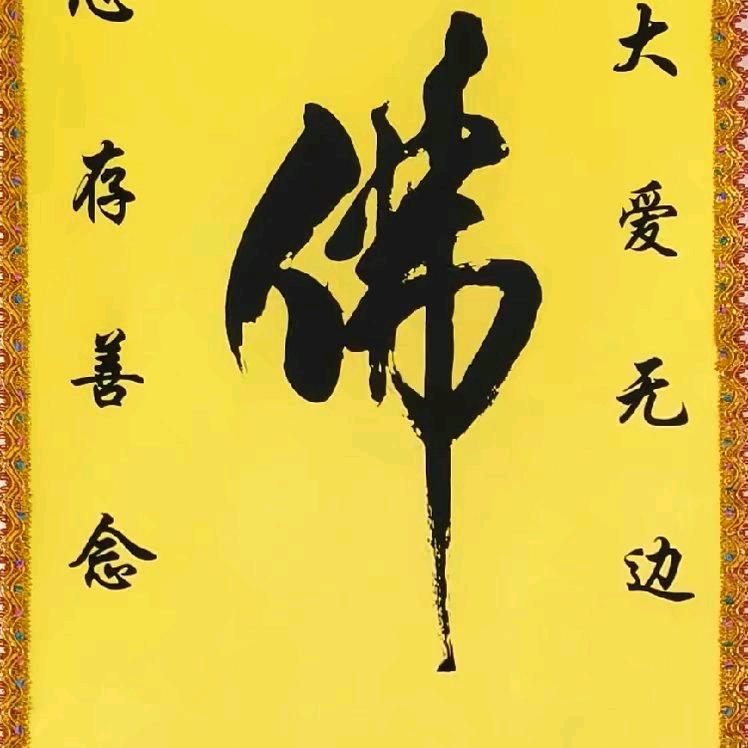 大爱无边
佛
存善念